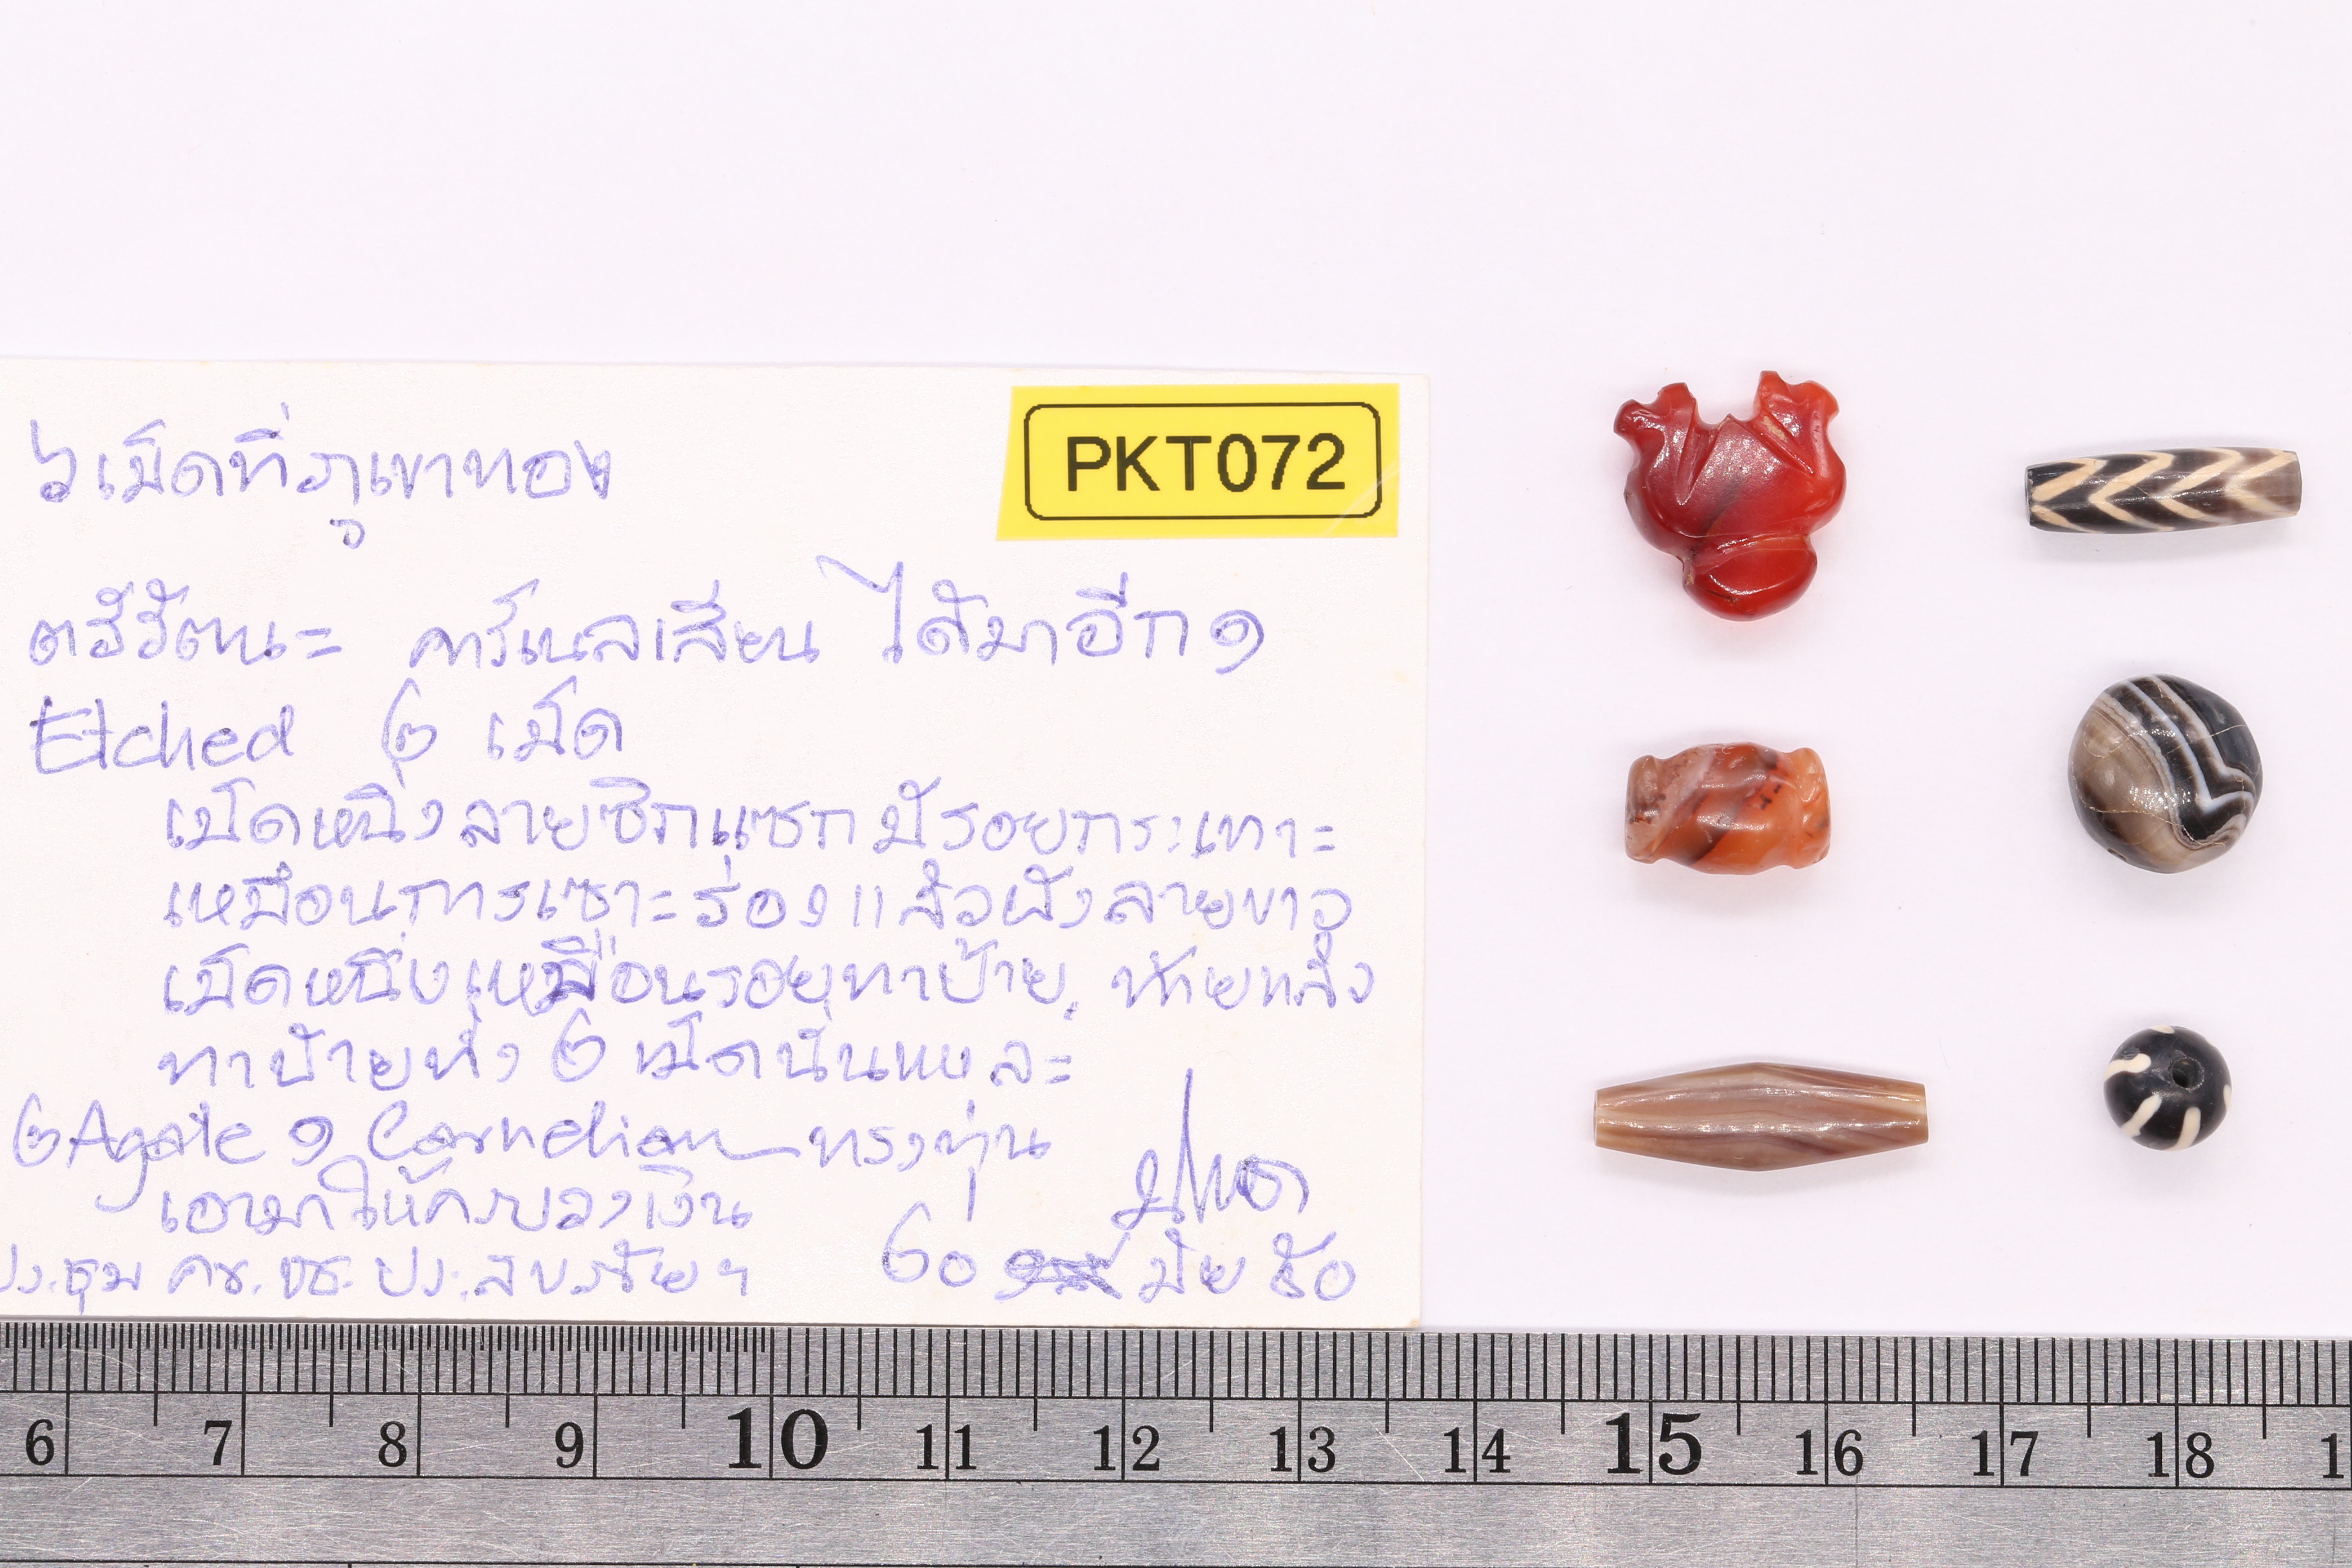 ๖ เม็ดที่ภูเขาทอง
PKT072
ตรีรัตนะ คาร์เนลเลียน ได้มาอีก ๑
Etched ๒ เม็ด
เม็ดหนึ่งลายซิกแซก มีรอยกระเทาะ
เหมือนการเซาะร่องแล้วฝังลายขาว
เม็ดหนึ่งเหมือนรอยทาป้าย,
ทาป้ายทั้ง ๒ เม็ดนั่นแหละ
๒ Agate ๑ Cornelian ทรงทุ่น
เอามาให้ครบวงเงิน
ประชุม คร. ๒๐ มิย ๕๐
6 7 8 9 10 11 12 13 14 15 16 17 18 1